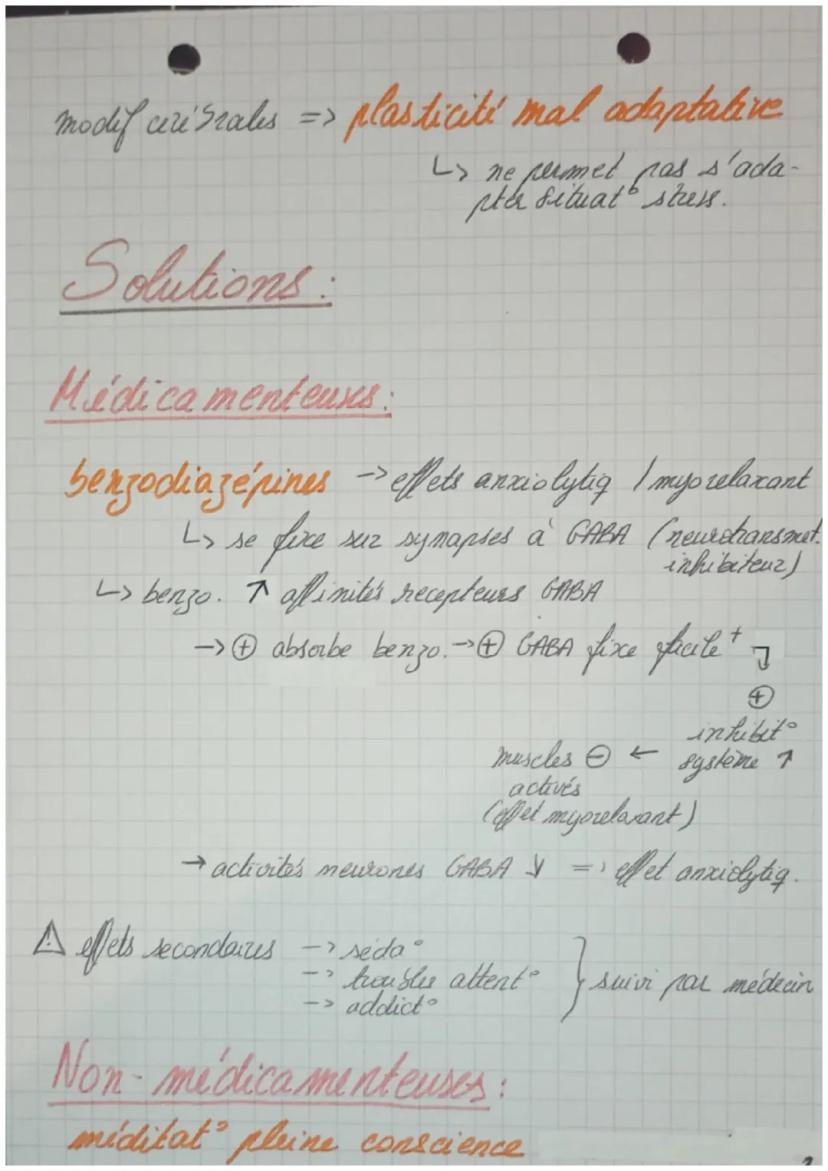 modif cérébrales => plasticité mal adaptative
↳ ne permet pas s'ada-
pter situat° stress.
Solutions :
Médicamenteuses :
benzodiazépines -> effets anxiolytiq / myorelaxant
↳ se fixe sur synapses à GABA (neurotransmet.
inhibiteur)
↳ benzo. ↑ affinités récepteurs GABA
-> ⊕ absorbe benzo. -> ⊕ GABA fixe facile⁺ ↴
⊕
inhibit°
muscles ⊖ ← système ↑
activés
(effet myorelaxant)
→ activités neurones GABA ↓ => effet anxiolytiq.
⚠ effets secondaires -> séda°
-> trouble attent° } suivi par médecin
-> addict°
Non-médicamenteuses :
méditat° pleine conscience